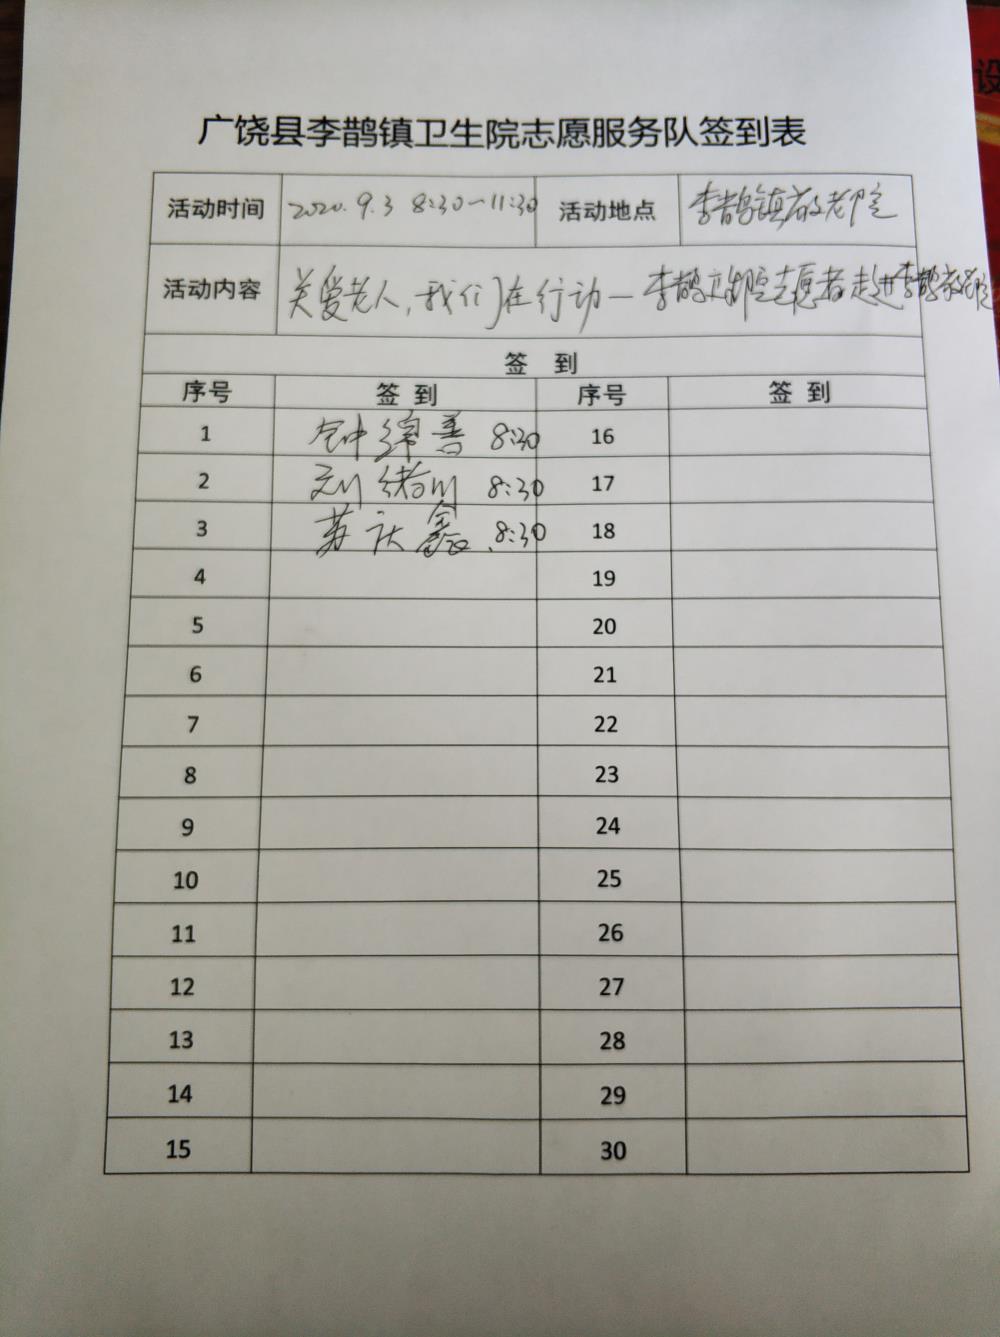 广饶县李鹊镇卫生院志愿服务队签到表
活动时间 2020.9.3 8:30—11:30 活动地点 李鹊镇敬老院
活动内容 关爱老人,我们在行动—李鹊卫生院志愿者走进李鹊敬老院
签 到
序号 签 到 序号 签 到
1 钟绵善 8:30 16
2 刘绪川 8:30 17
3 苏庆鑫 8:30 18
4 19
5 20
6 21
7 22
8 23
9 24
10 25
11 26
12 27
13 28
14 29
15 30
设